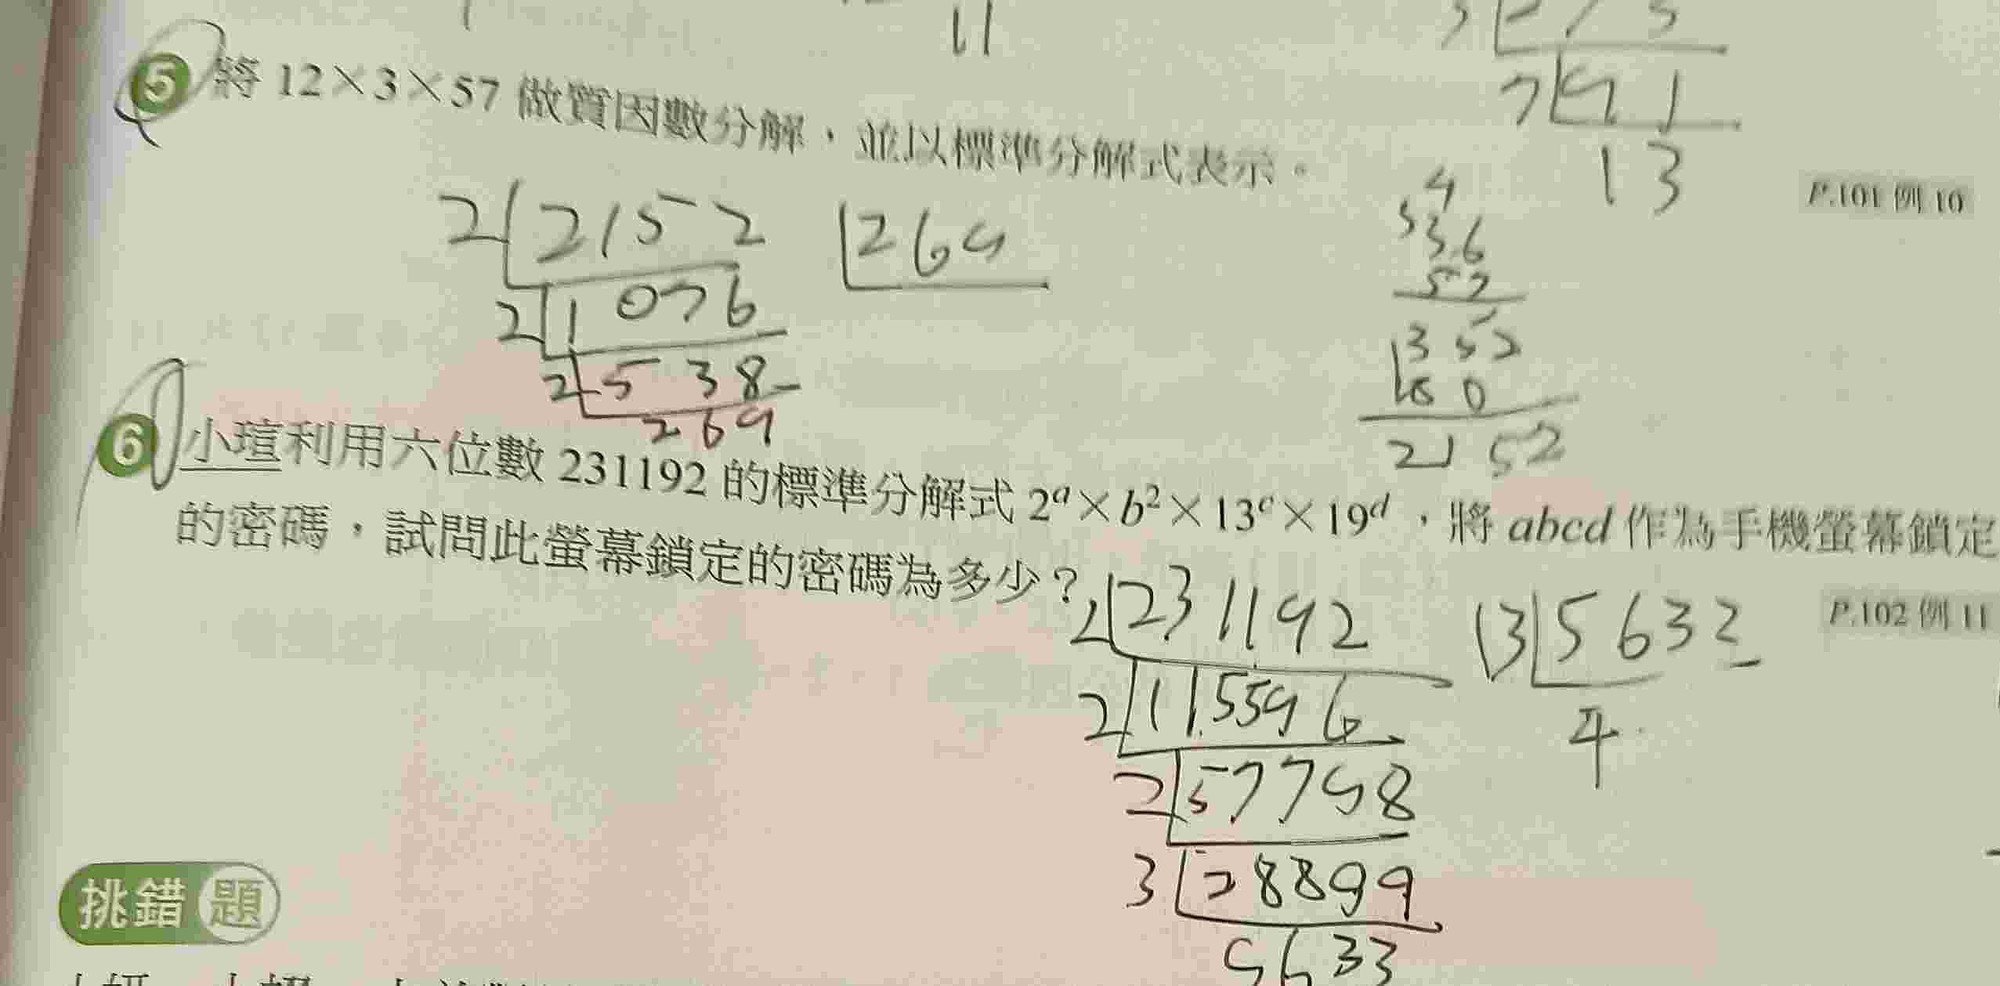 11
5 將 12×3×57 做質因數分解，並以標準分解式表示。
7 91
13
P.101 例 10
2 2152
269
2 1076
2 538
269
4
36
52
1352
80
2152
6 小瑄利用六位數 231192 的標準分解式 2^a×b^2×13^c×19^d，將 abcd 作為手機螢幕鎖定
的密碼，試問此螢幕鎖定的密碼為多少？
P.102 例 11
2 231192
2 115596
2 57798
3 28899
5633
13 5633
4
挑錯題